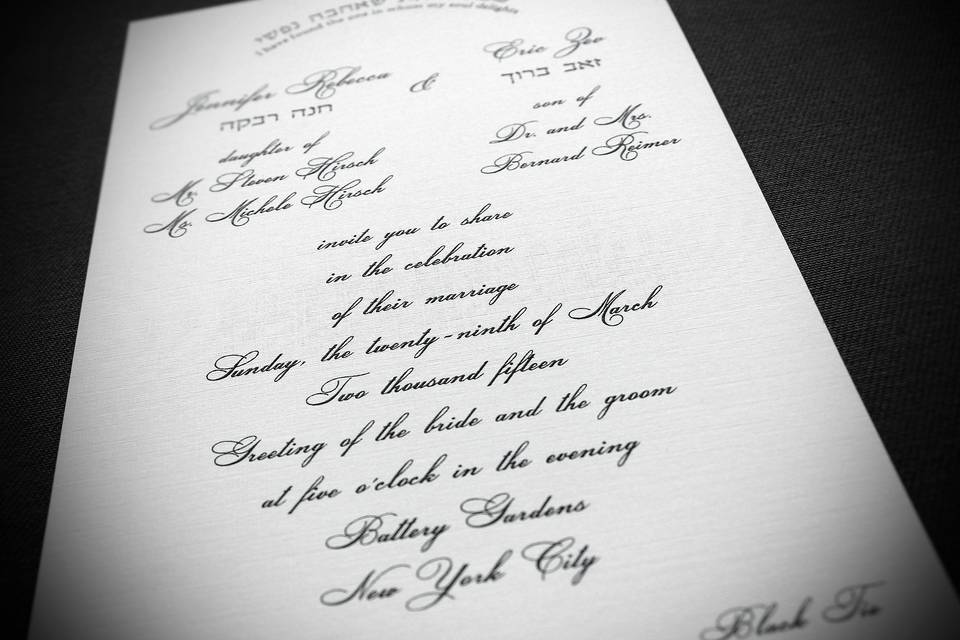 שאהבה נפשי
I have found the one in whom my soul delights
Jennifer Rebecca
חנה רבקה
&
Eric Zev
זאב ברוך
daughter of
Mr. Steven Hirsch
Ms. Michele Hirsch
son of
Dr. and Mrs.
Bernard Reimer
invite you to share
in the celebration
of their marriage
Sunday, the twenty-ninth of March
Two thousand fifteen
Greeting of the bride and the groom
at five o'clock in the evening
Battery Gardens
New York City
Black Tie